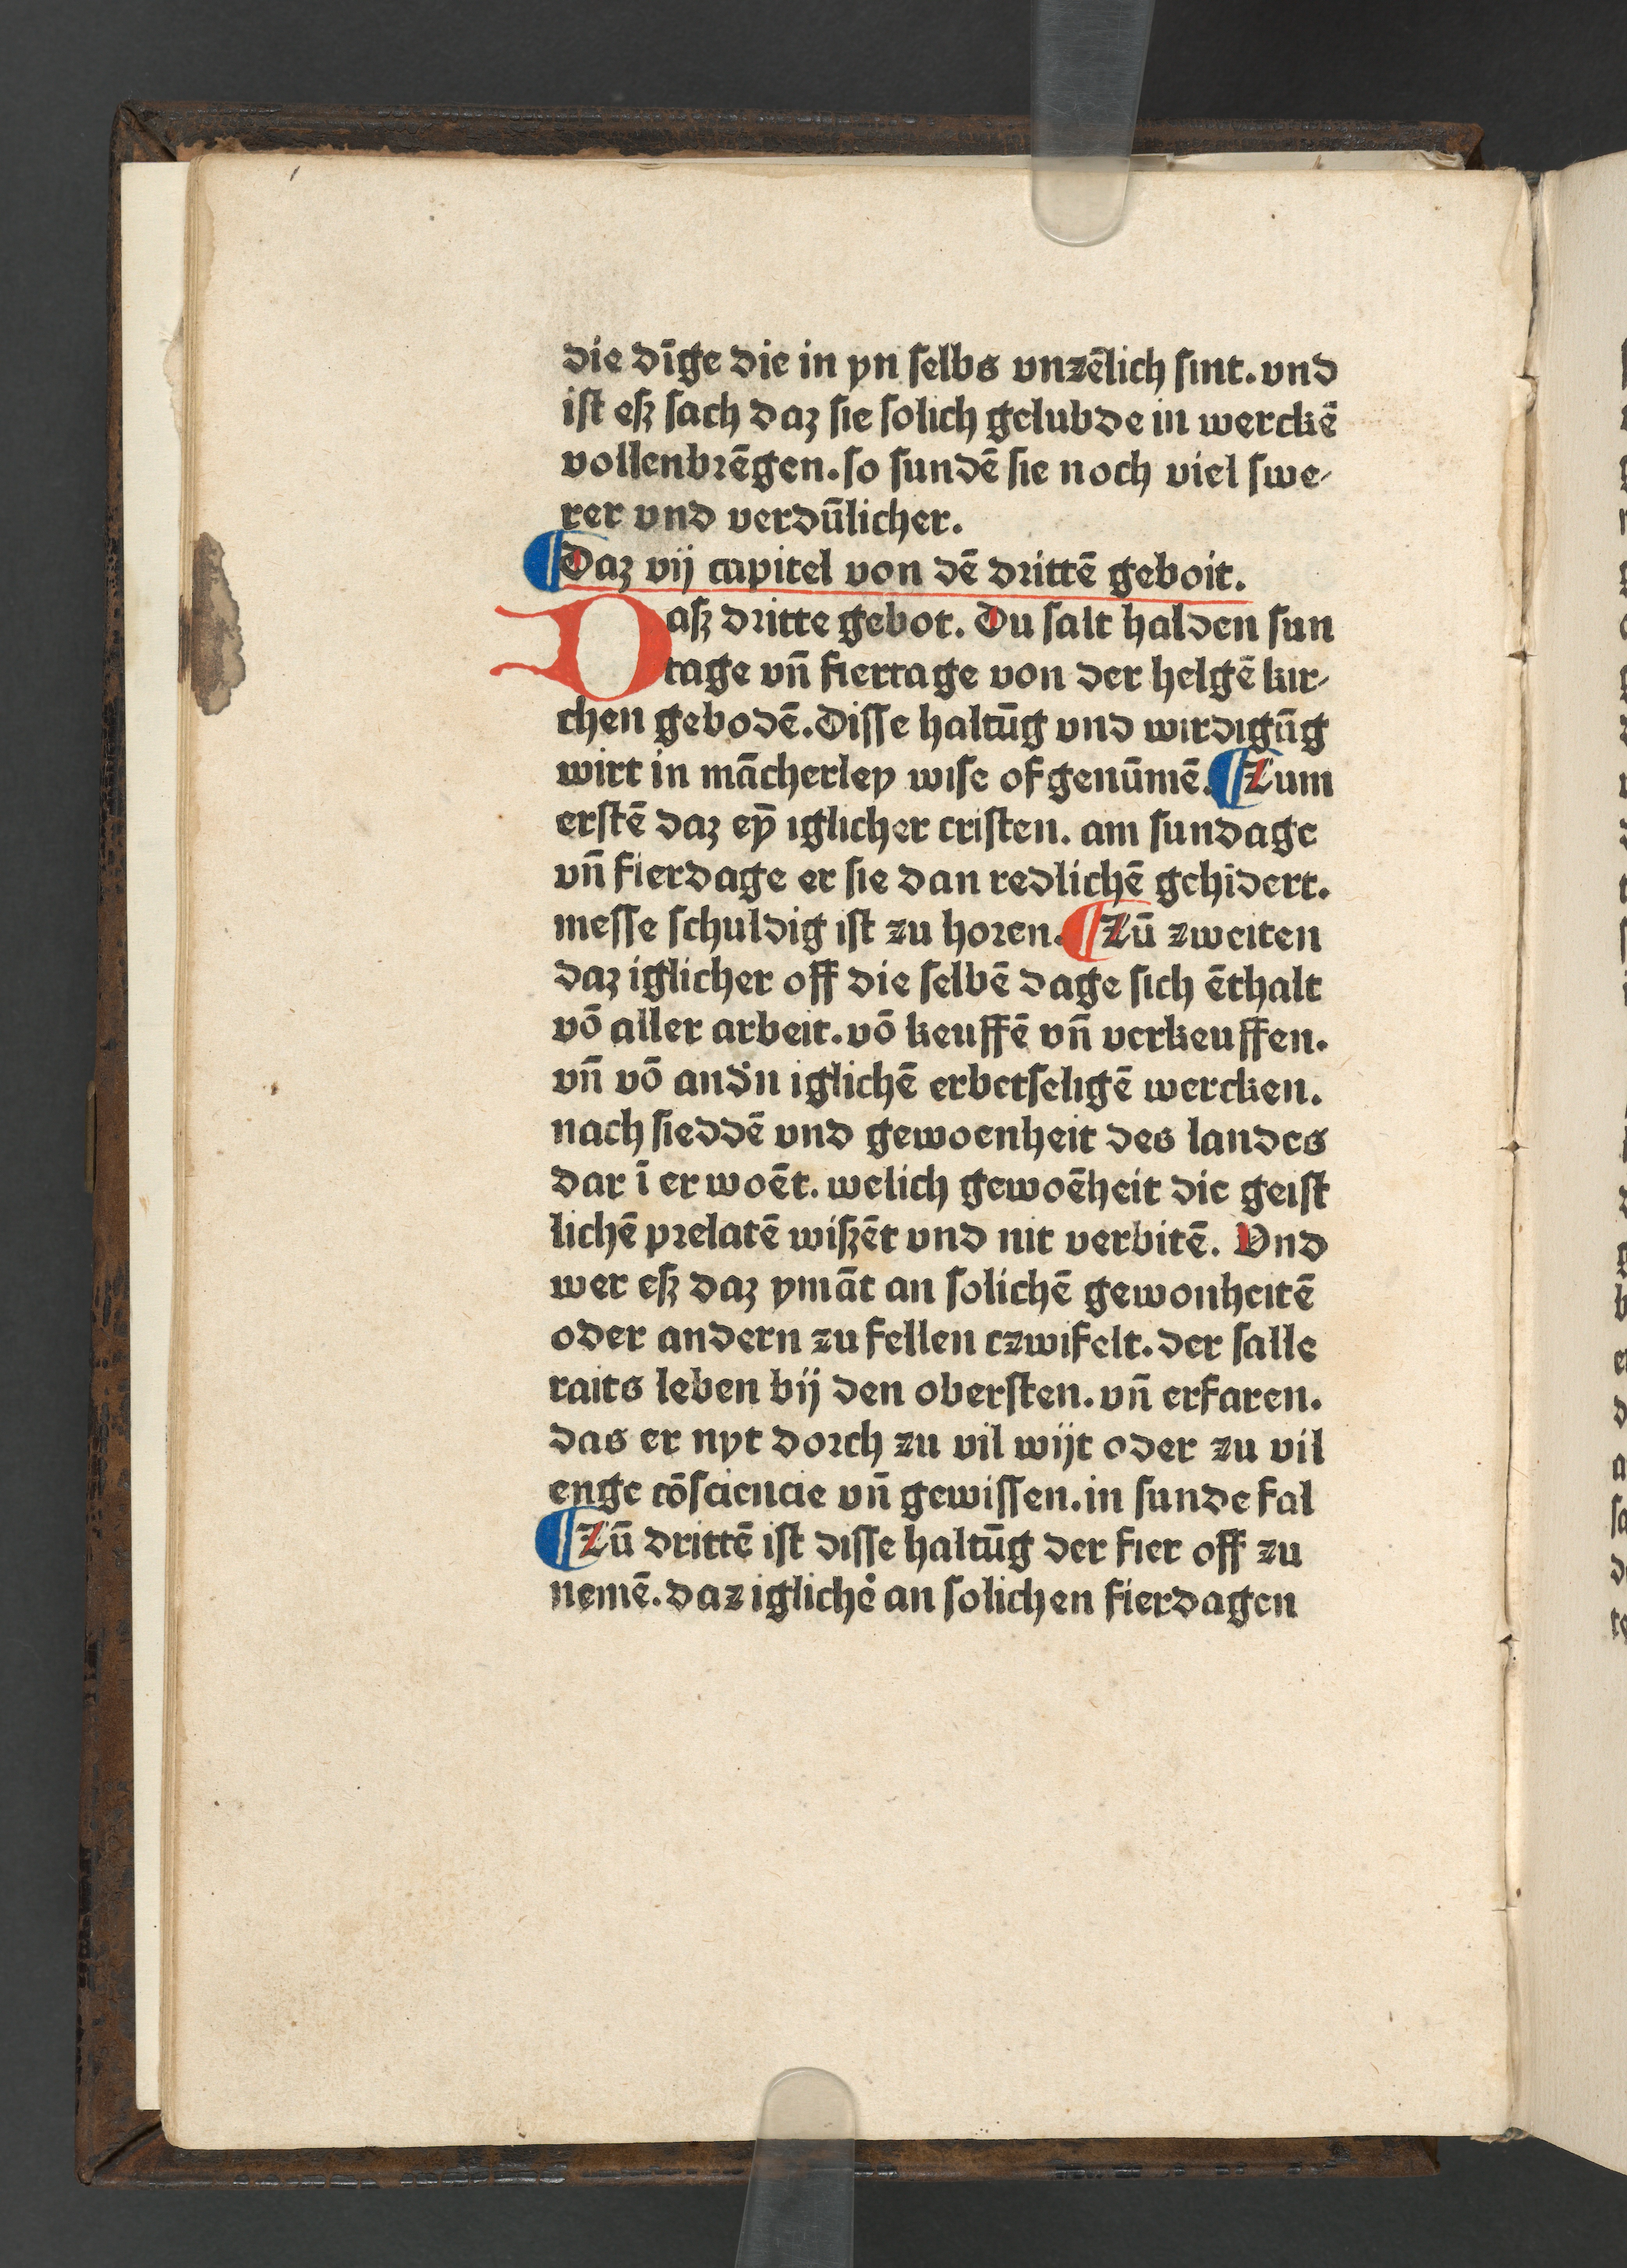 die dīge die in yn ſelbs vnzēlich ſint. vnd
iſt eſz ſach daz ſie ſolich gelubde in werckē
vollenbrēgen. ſo ſundē ſie noch viel ſwe-
rer vnd verdūlicher.
¶ Daz vij capitel von dē drittē geboit.
Daſz dritte gebot. Du ſalt halden ſun
tage vn̄ fiertage von der helgē kir-
chen gebodē. Diſſe haltūg vnd wirdigūg
wirt in mācherley wiſe ofgenūmē. ¶ Zum
erſtē daz eyn̄ iglicher criſten. am ſundage
vn̄ fierdage er ſie dan redlichē gehīdert.
meſſe ſchuldig iſt zu horen. ¶ Zū zweiten
daz iglicher off die ſelbē dage ſich ēthalt
vō aller arbeit. vō keuffē vn̄ verkeuffen.
vn̄ vō andn̄ iglichē erbetſeligē wercken.
nach ſieddē vnd gewoenheit des landes
dar ī er woēt. welich gewoēheit die geiſt
lichē prelatē wiſzēt vnd nit verbitē. Vnd
wer eſz daz ymāt an ſolichē gewonheitē
oder andern zufellen czwifelt. der ſalle
raits leben bij den oberſten. vn̄ erfaren.
das er nyt dorch zu vil wijt oder zu vil
enge cōſciencie vn̄ gewiſſen. in ſunde fal
¶ Zū drittē iſt diſſe haltūg der fier off zu
nemē. daz iglichē an ſolichen fierdagen